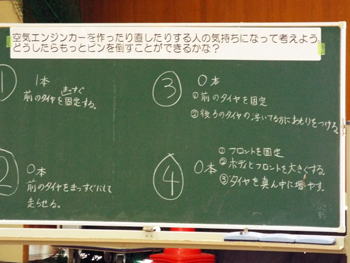 空気エンジンカーを作ったり直したりする人の気持ちになって考えよう。
どうしたらもっとピンを倒すことができるかな？
① 1本
まっすぐ
前のタイヤを固定する。
② 0本
前のタイヤをまっすぐにして
走らせる。
③ 0本
①前のタイヤを固定
②後ろのタイヤの浮いてる方におもりをつける。
④ 0本
①フロントを固定
②ボディとフロントを大きくする。
③タイヤを真ん中に増やす。